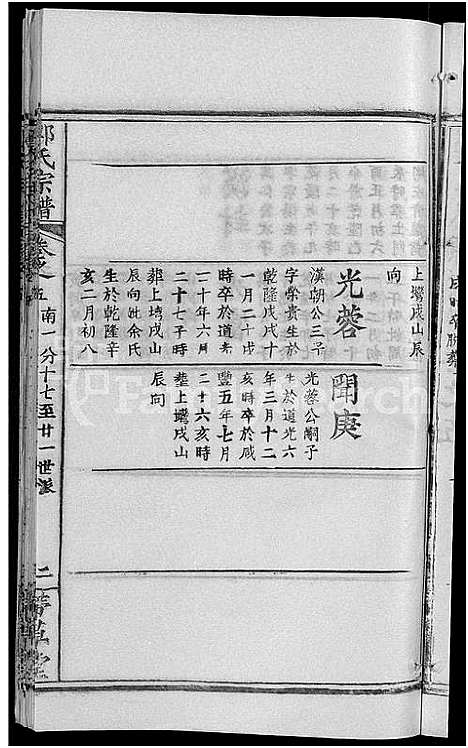 上塆戌山辰
向
光蓉
漢朝公三子
字榮貴生於
乾隆戊戌十
一月二十戌
時卒於道光
二十年六月
二十七子時
葬上塆戌山
辰向妣余氏
生於乾隆辛
亥二月初八
聞庚
光蓉公嗣子
生於道光六
年三月十二
亥時卒於咸
豐五年七月
二十六亥時
塟上塆戌山
辰向
氏宗譜
卷之五
南一分十七至廿一世派
二